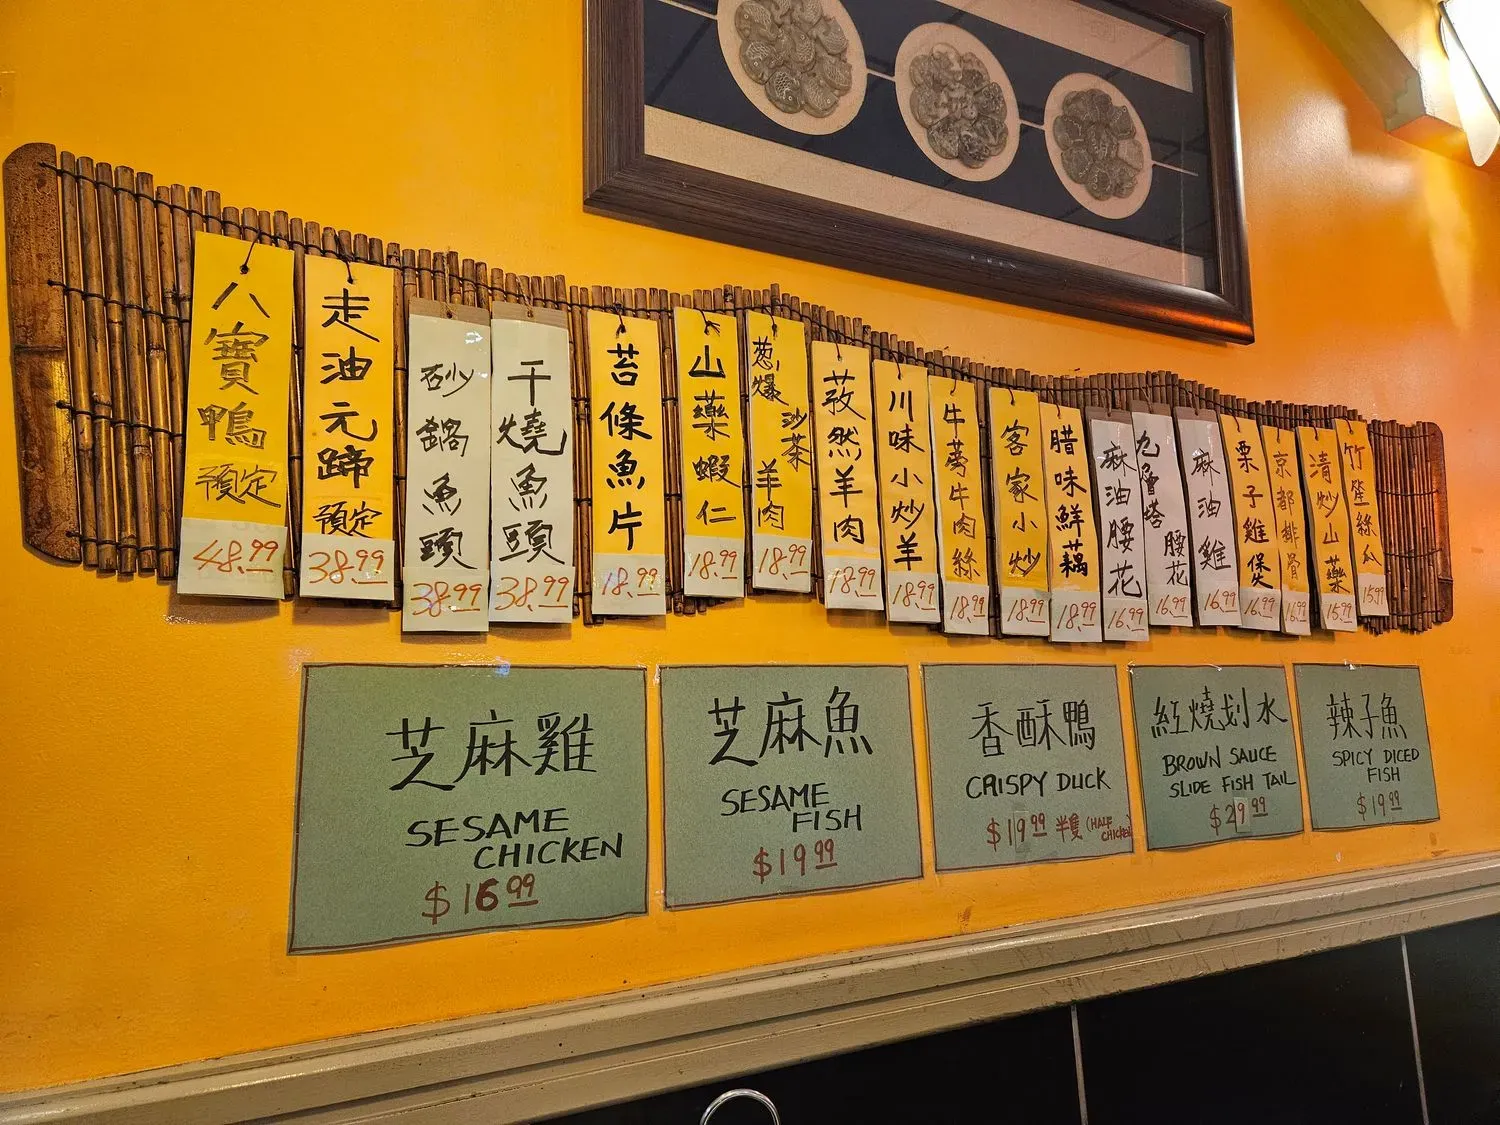 八寶鴨
預定
48.99
走油元蹄
預定
38.99
砂鍋魚頭
38.99
干燒魚頭
38.99
苔條魚片
18.99
山藥蝦仁
18.99
葱爆
沙茶
羊肉
18.99
孜然羊肉
18.99
川味小炒羊
18.99
牛蒡牛肉絲
18.99
客家小炒
18.99
腊味鮮藕
18.99
麻油腰花
16.99
九層塔
腰花
16.99
麻油雞
16.99
栗子雞保
16.99
京都排骨
16.99
清炒山藥
15.99
竹笙絲瓜
15.99
芝麻雞
SESAME
CHICKEN
$16.99
芝麻魚
SESAME
FISH
$19.99
香酥鴨
CRISPY DUCK
$19.99 半隻 (HALF
CHICKEN)
紅燒划水
BROWN SAUCE
SLIDE FISH TAIL
$29.99
辣子魚
SPICY DICED
FISH
$19.99